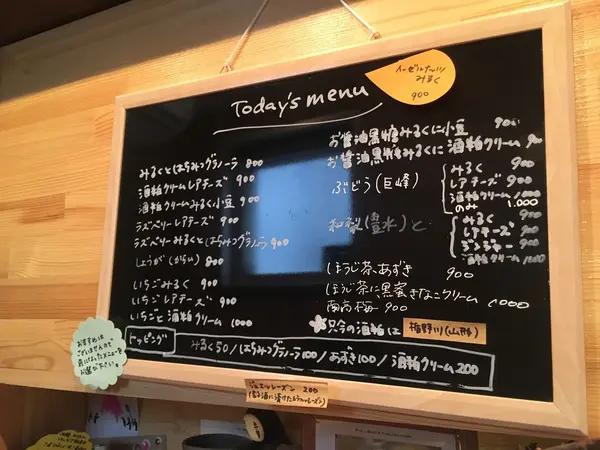 Today's menu
みるくとはちみつグラノーラ 800
酒粕クリームレアチーズ 900
酒粕クリームみるく小豆 900
ラズベリーレアチーズ 900
ラズベリーみるくとはちみつグラノーラ 900
しょうが(からい) 800
いちごみるく 900
いちごレアチーズ 900
いちごと酒粕クリーム 1000
みるく
900
お醤油黒糖みるくに小豆 900
お醤油黒糖みるくに酒粕クリーム 900
ぶどう(巨峰)
みるく 900
レアチーズ 900
酒粕クリーム 1000
のみ 1,000
和梨(豊水)と
みるく 900
レアチーズ 900
ジンジャー 900
酒粕クリーム 1000
ほうじ茶、あずき 900
ほうじ茶に黒蜜きなこクリーム 1000
南高梅 900
只今の酒粕は 楯野川(山形)
トッピング
みるく50/はちみつグラノーラ100/あずき100/酒粕クリーム200
おすすめは
ございませんので
気になったメニューを
お選び下さい。
レーズン 200